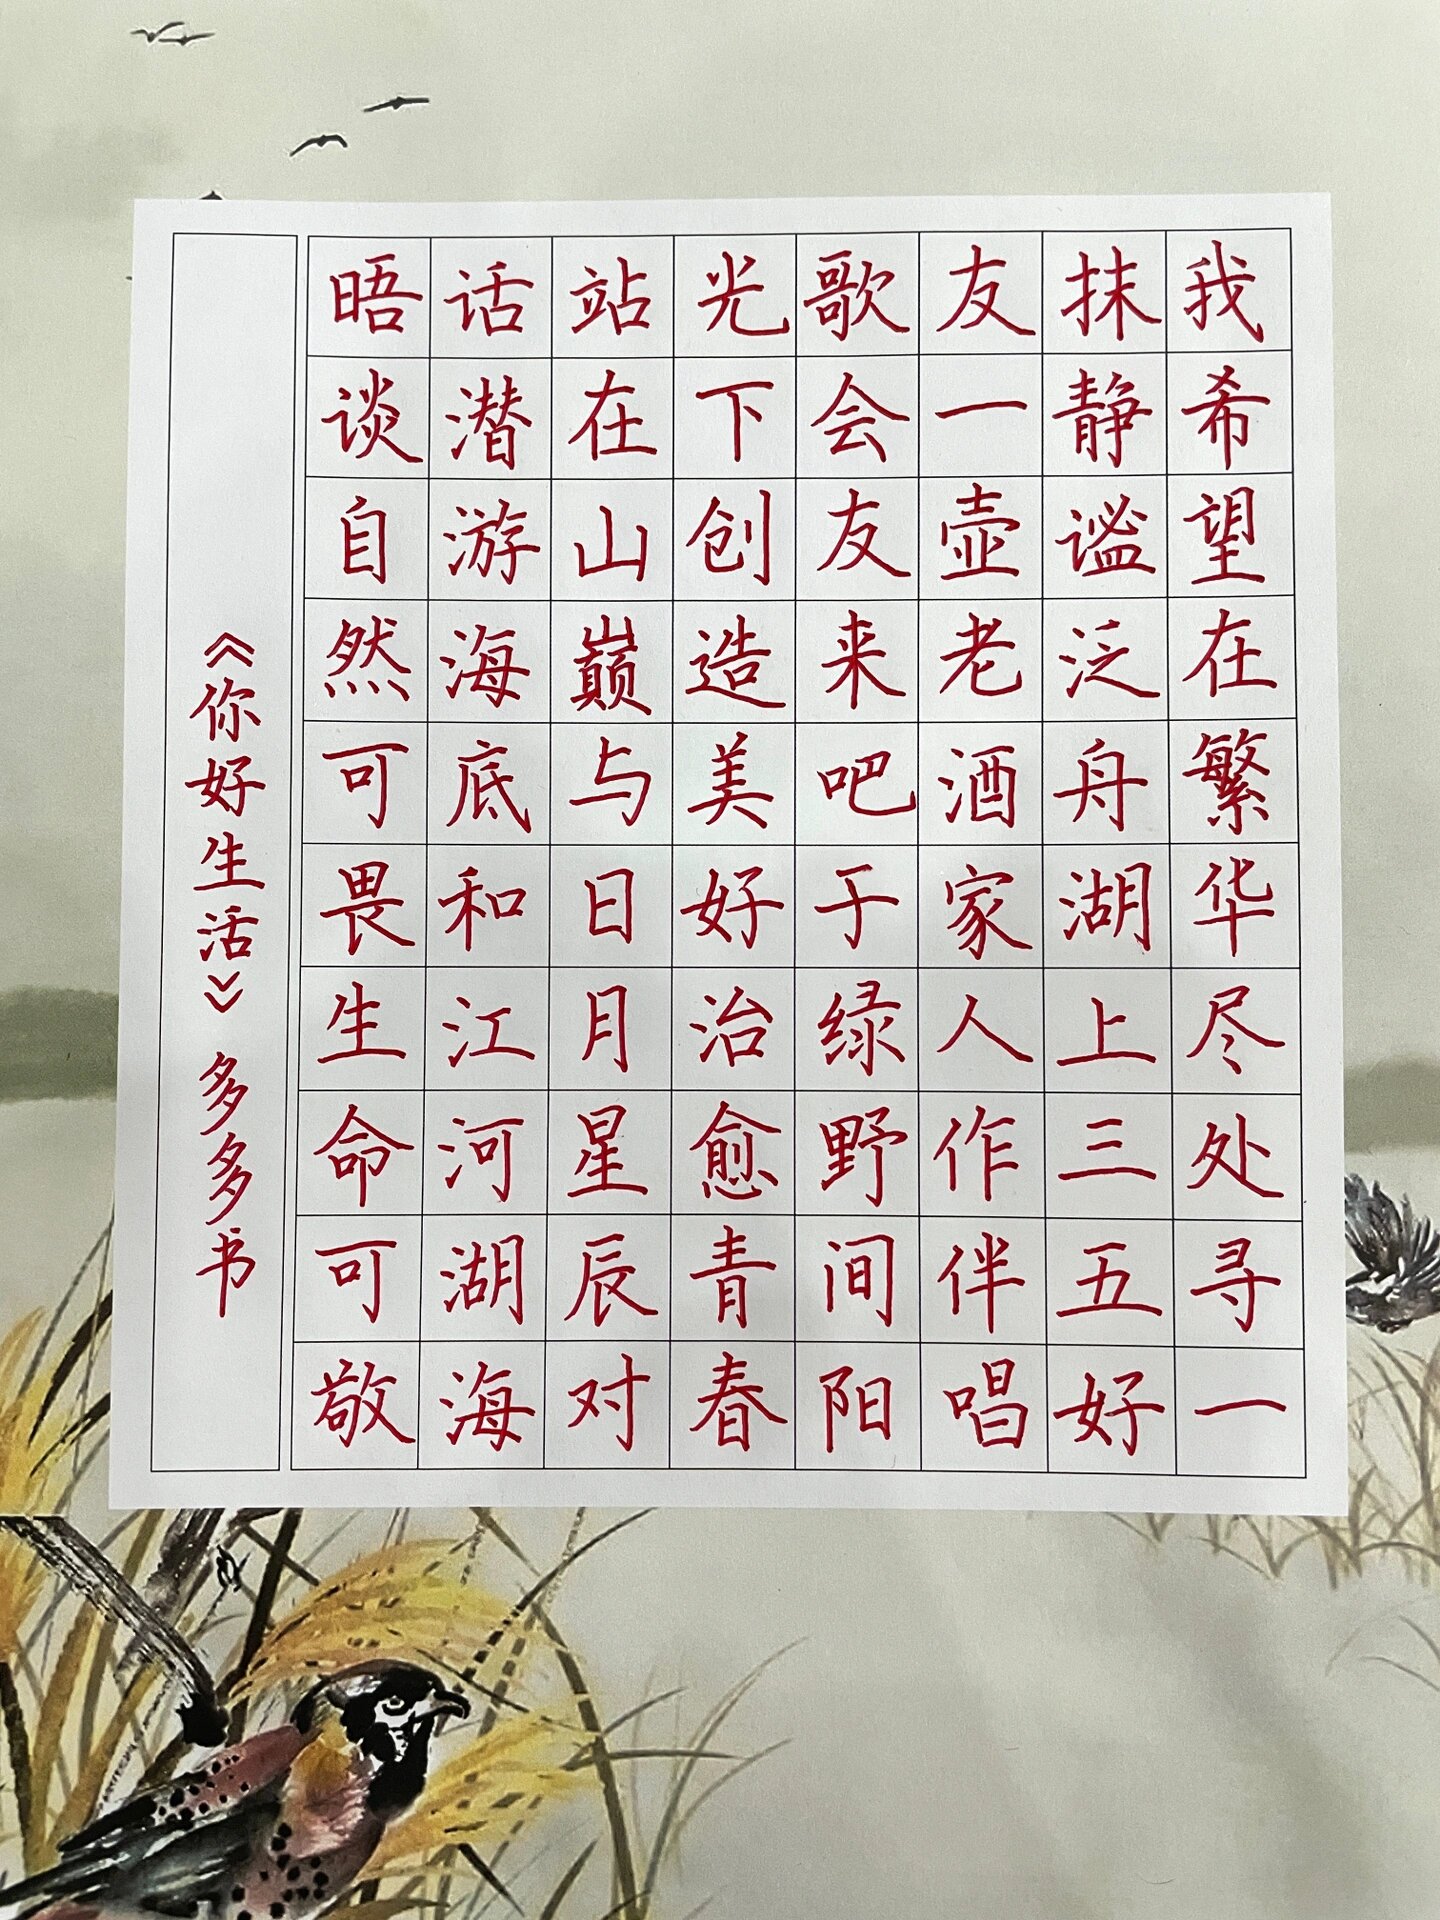 我希望在繁华尽处寻一
抹静谧泛舟湖上三五好
友一壶老酒家人作伴唱
歌会友来吧于绿野间阳
光下创造美好治愈青春
站在山巅与日月星辰对
话潜游海底和江河湖海
晤谈自然可畏生命可敬
《你好生活》多多书